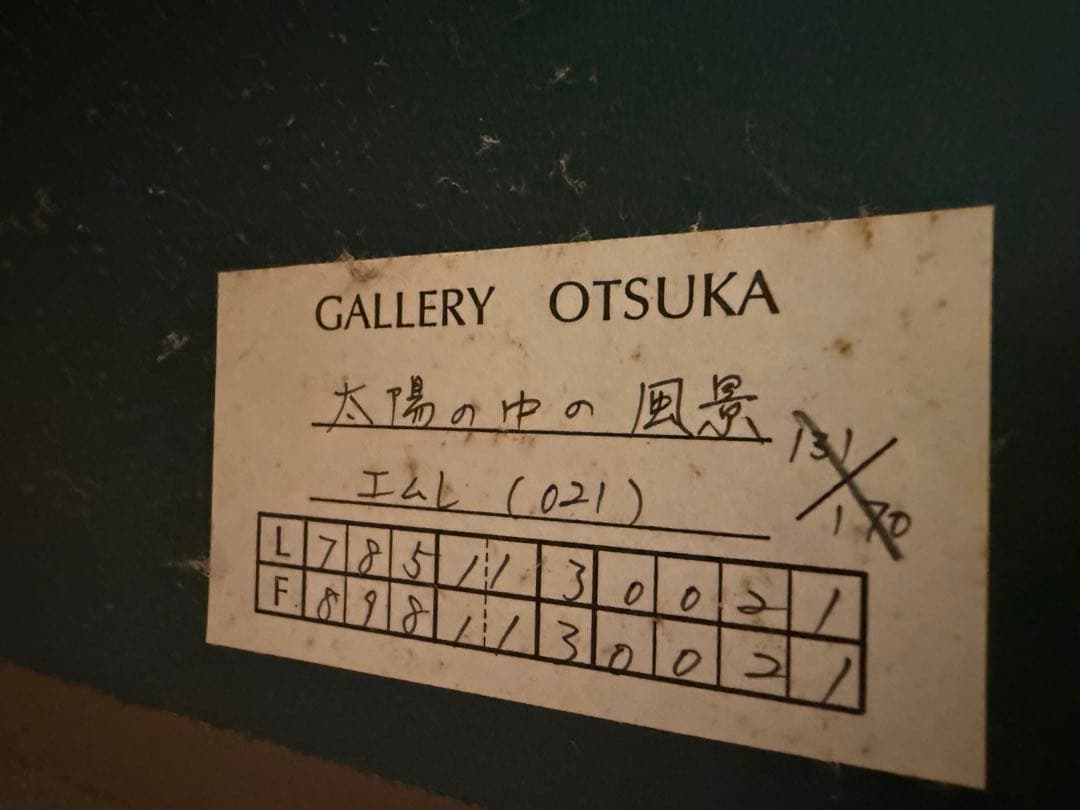 GALLERY OTSUKA
太陽の中の風景
131/170
エムレ (021)
L 7 8 5 1 1 3 0 0 2 1
F 8 9 8 1 1 3 0 0 2 1